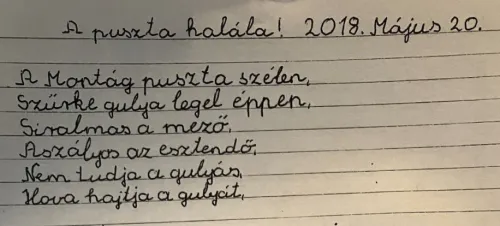 A puszta halála! 2018. Május 20.
A Montág puszta szélen,
Szürke gulya legel éppen,
Siralmas a mező,
Aszályos az esztendő,
Nem tudja a gulyás,
Hova hajtja a gulyát,